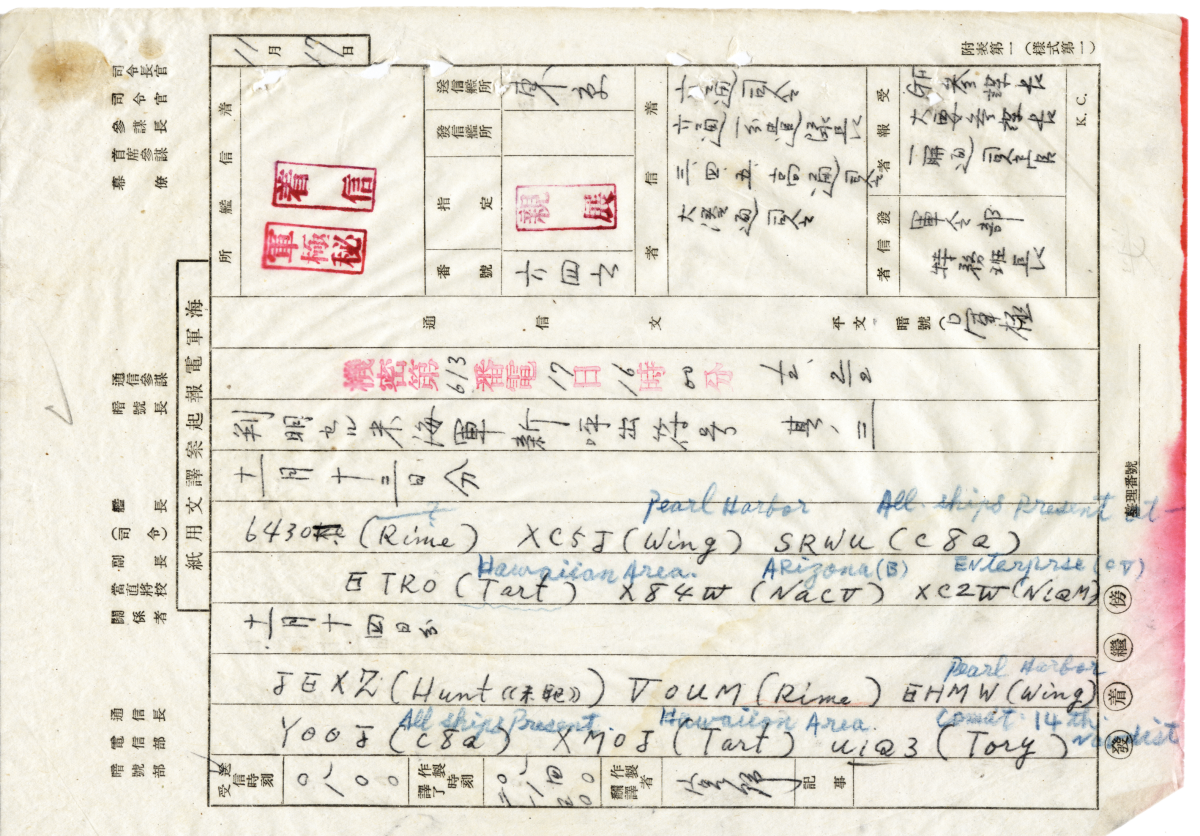 附表第一（様式第一）
K.C.
11月17日
司令長官
司令官
參謀長
首席參謀
幕僚
通信參謀
暗號長
艦長
（司令）
副長
當直將校
關係者
通信長
電信部
暗號部
海軍電報起案譯文用紙
受報者
大要參謀長
一聯通司令官
發信者
軍令部
特務班長
着信者
六通司令
三、四、五、
大湊通司令
送信艦所
東京
發信艦所
指定
親展
番號
六四七
着信艦所
着信
軍極秘
通信文
平文 暗號(D) 軍極
機密第613番電 17日16時00分
判明セル米海軍新呼出符号 其ノ二
十一月十三日分
Pearl Harbor All ships Present at
6430 (Rime) XC5J (Wing) SRWU (C8Q)
Hawaiian Area. ARizona(B) ENterprse (CV)
ETRO (Tart) X84W (NACV) XC2W (NIQM)
十一月十四日分
Pearl Harbor
JEXZ (Hunt《未配》) VOUM (Rime) EHMW (Wing)
All ships Present. Hawaiian Area. Comdt. 14 th Nav Dist
YOOJ (C8Q) XMOJ (Tart) UIQ3 (Tory)
受送信時刻
譯了作製時刻
飜譯作製者
記事
整理番號
傍
繼
着
發